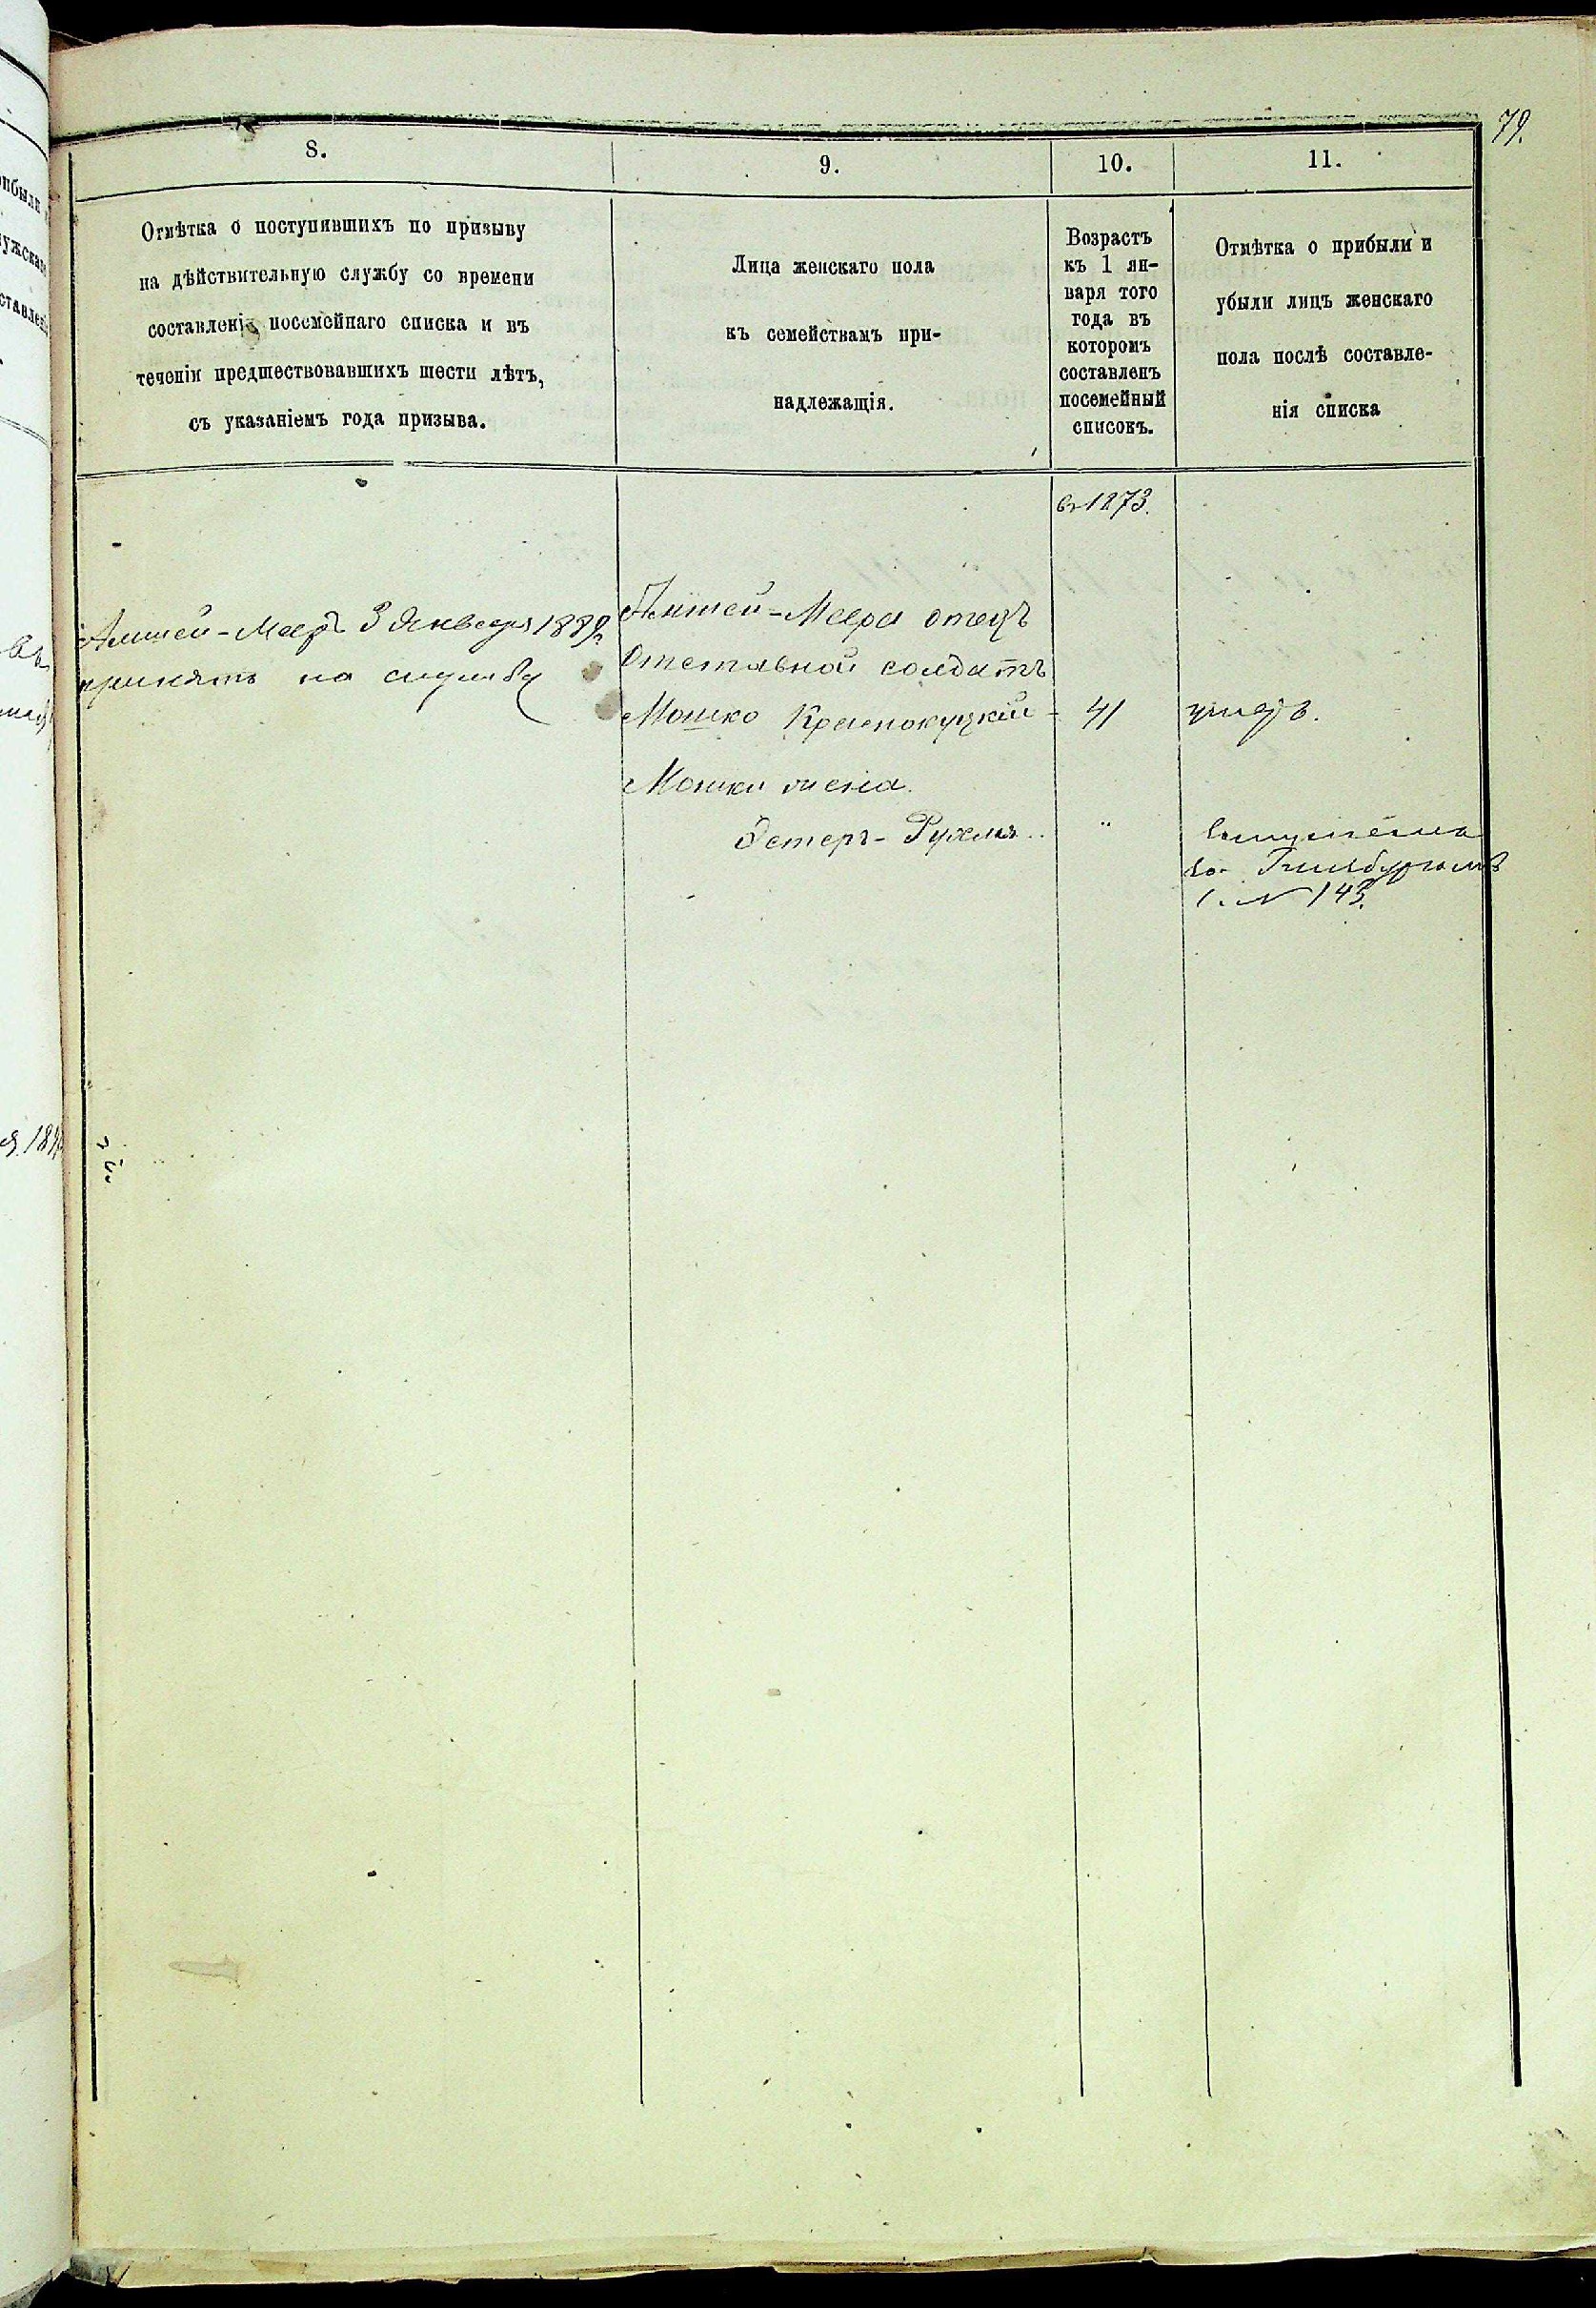 79.
8.
9.
10.
11.
Отмѣтка о поступившихъ по призыву
на дѣйствительную службу со времени
составленія посемейнаго списка и въ
теченіи предшествовавшихъ шести лѣтъ,
съ указаніемъ года призыва.
Лица женскаго пола
къ семействамъ при-
надлежащія.
Возрастъ
къ 1 ян-
варя того
года въ
которомъ
составленъ
посемейный
списокъ.
Отмѣтка о прибыли и
убыли лицъ женскаго
пола послѣ составле-
нія списка
въ 1873.
Амшей-Мееръ 3 декабря 1889
принятъ на службу
Амшей-Меера отецъ
Отставной солдатъ
Мошко Краснокуцкій - 41 умеръ.
Мошки жена
Эстеръ-Рухля "
за Гинзбургомъ
№ 143.